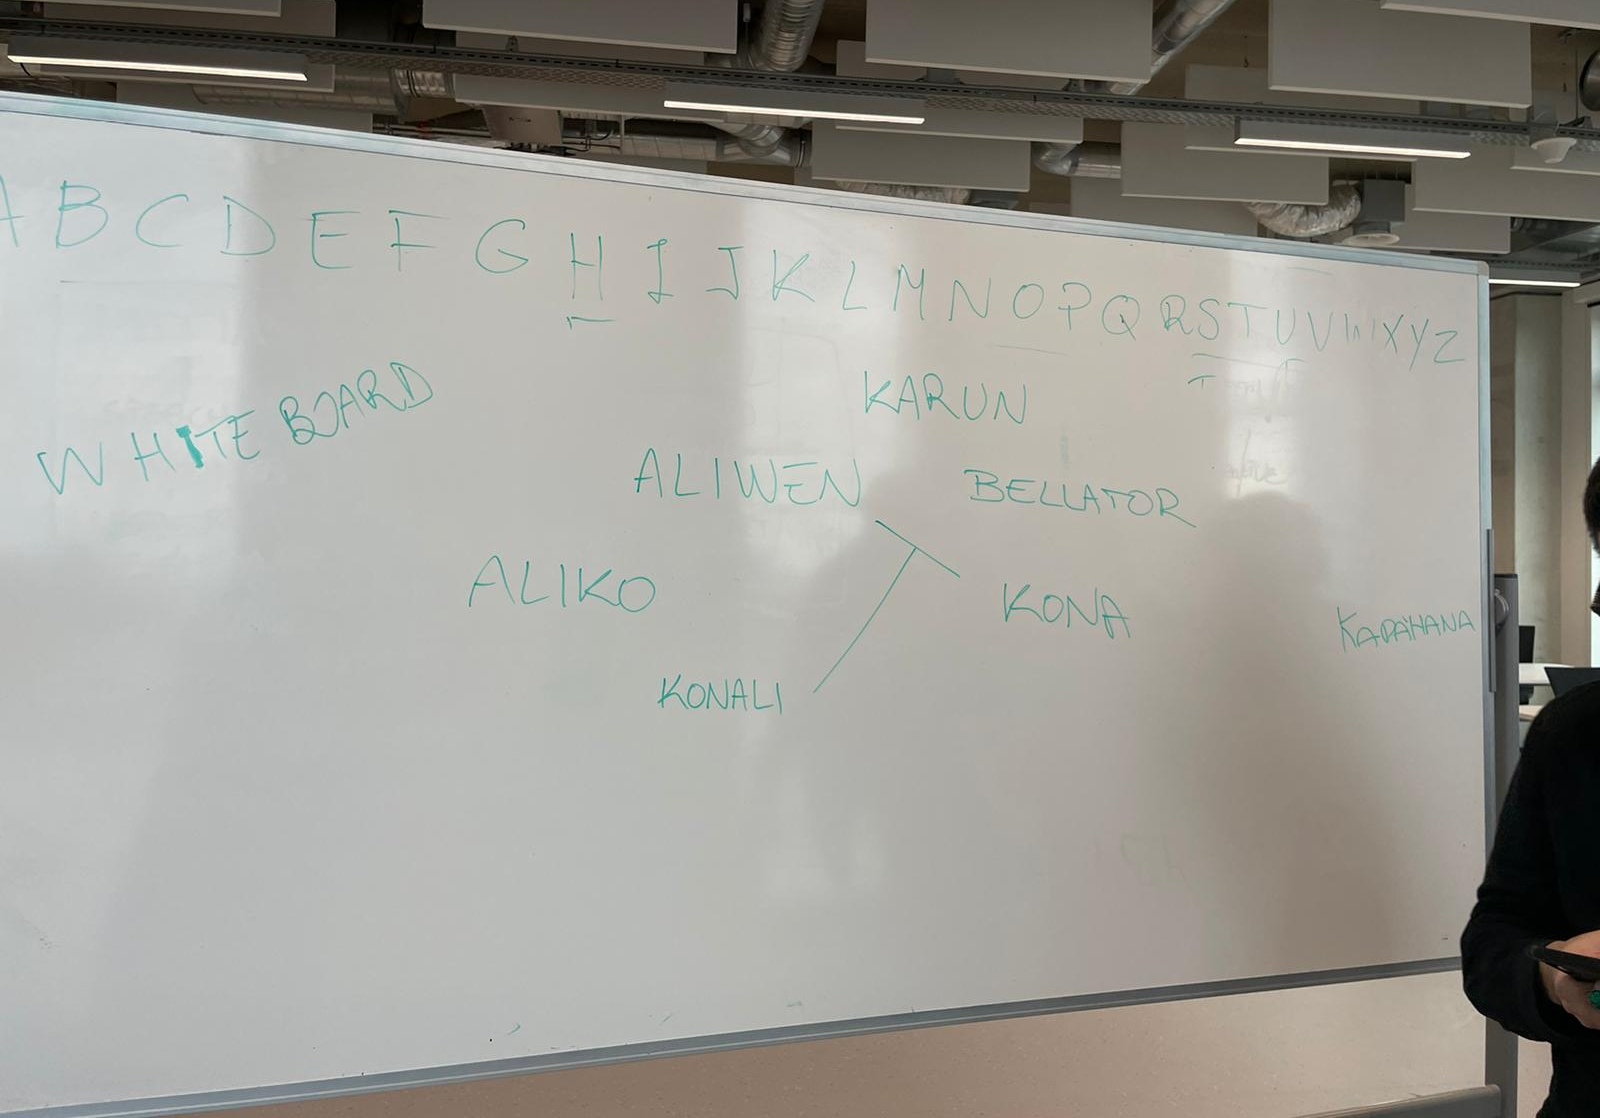 A B C D E F G H I J K L M N O P Q R S T U V W X Y Z
WHITE BOARD
KARUN
ALIWEN
BELLATOR
ALIKO
KONA
KONALI